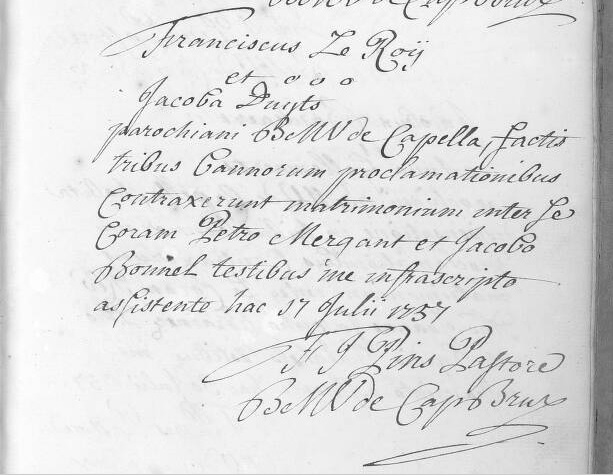 BMV de Cap Brux
Franciscus Le Roÿ
et o o o
Jacoba Duyts
parochiani BMV de Capella, factis
tribus bannorum proclamationibus
Contraxerunt matrimonium inter se
Coram Petro Mergant et Jacobo
Bonnel testibus me infrascripto
assistente hac 17 Julii 1757
F J Pins Pastore
BMV de Cap Brux